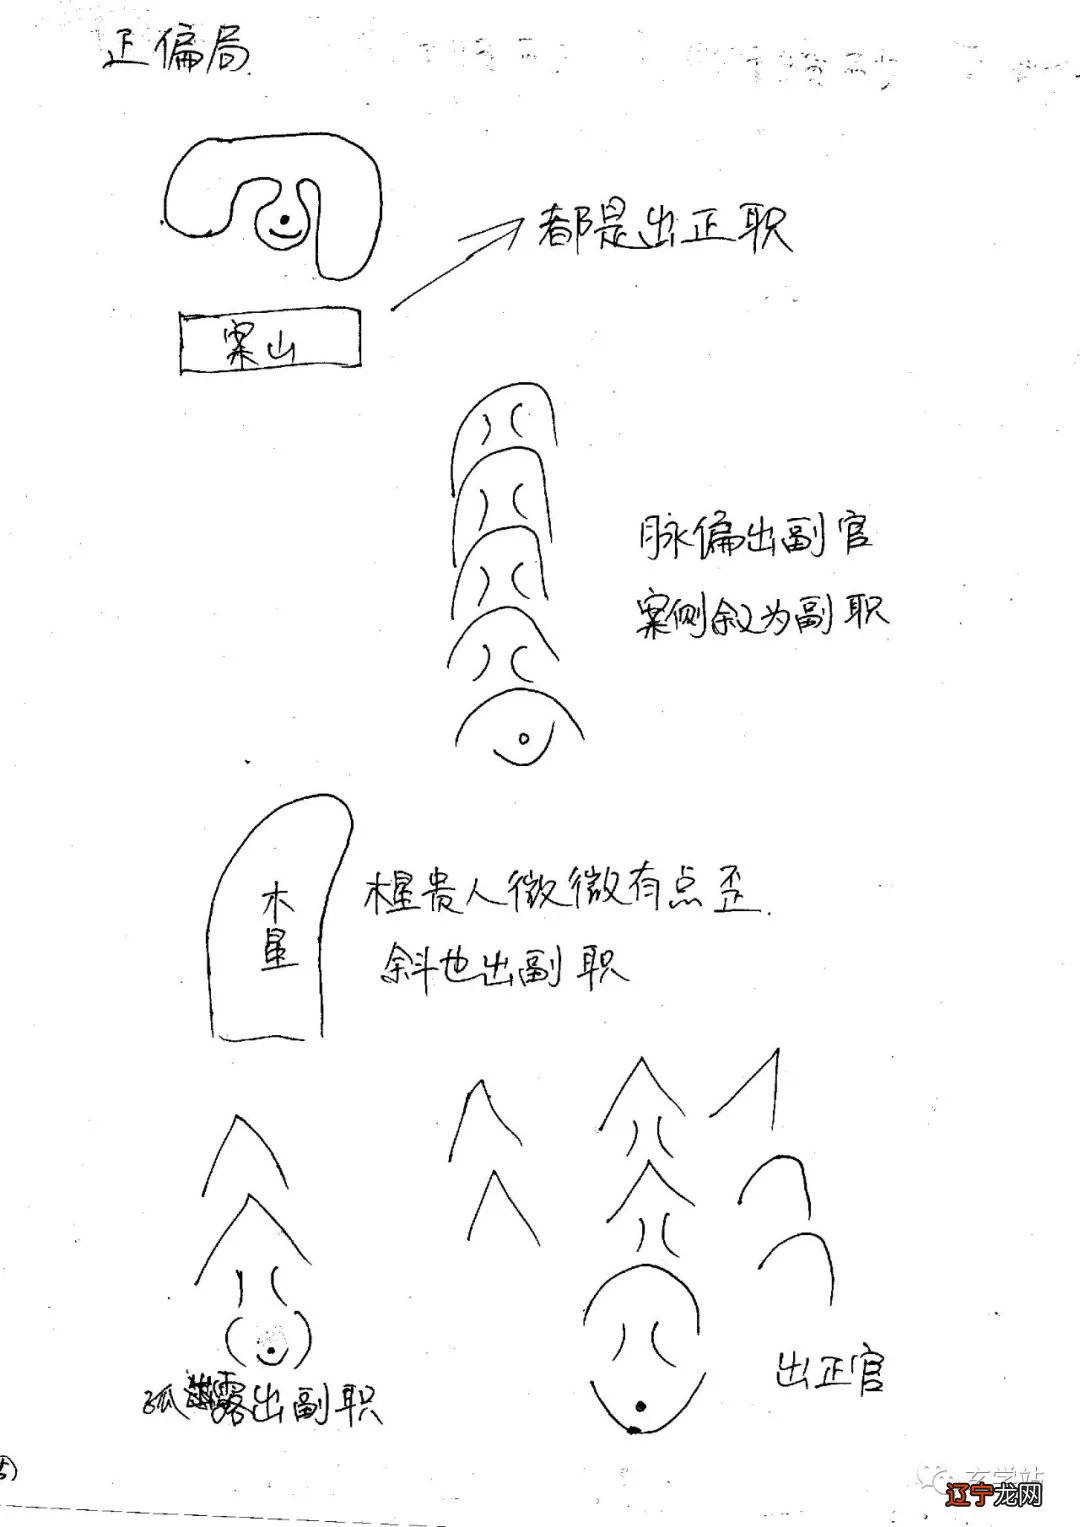 正偏局
都是出正职
案山
脉偏出副官
案侧叙为副职
木星
木星贵人微微有点歪.
斜也出副职
孤露出副职
出正官
玄学站
辽宁龙网